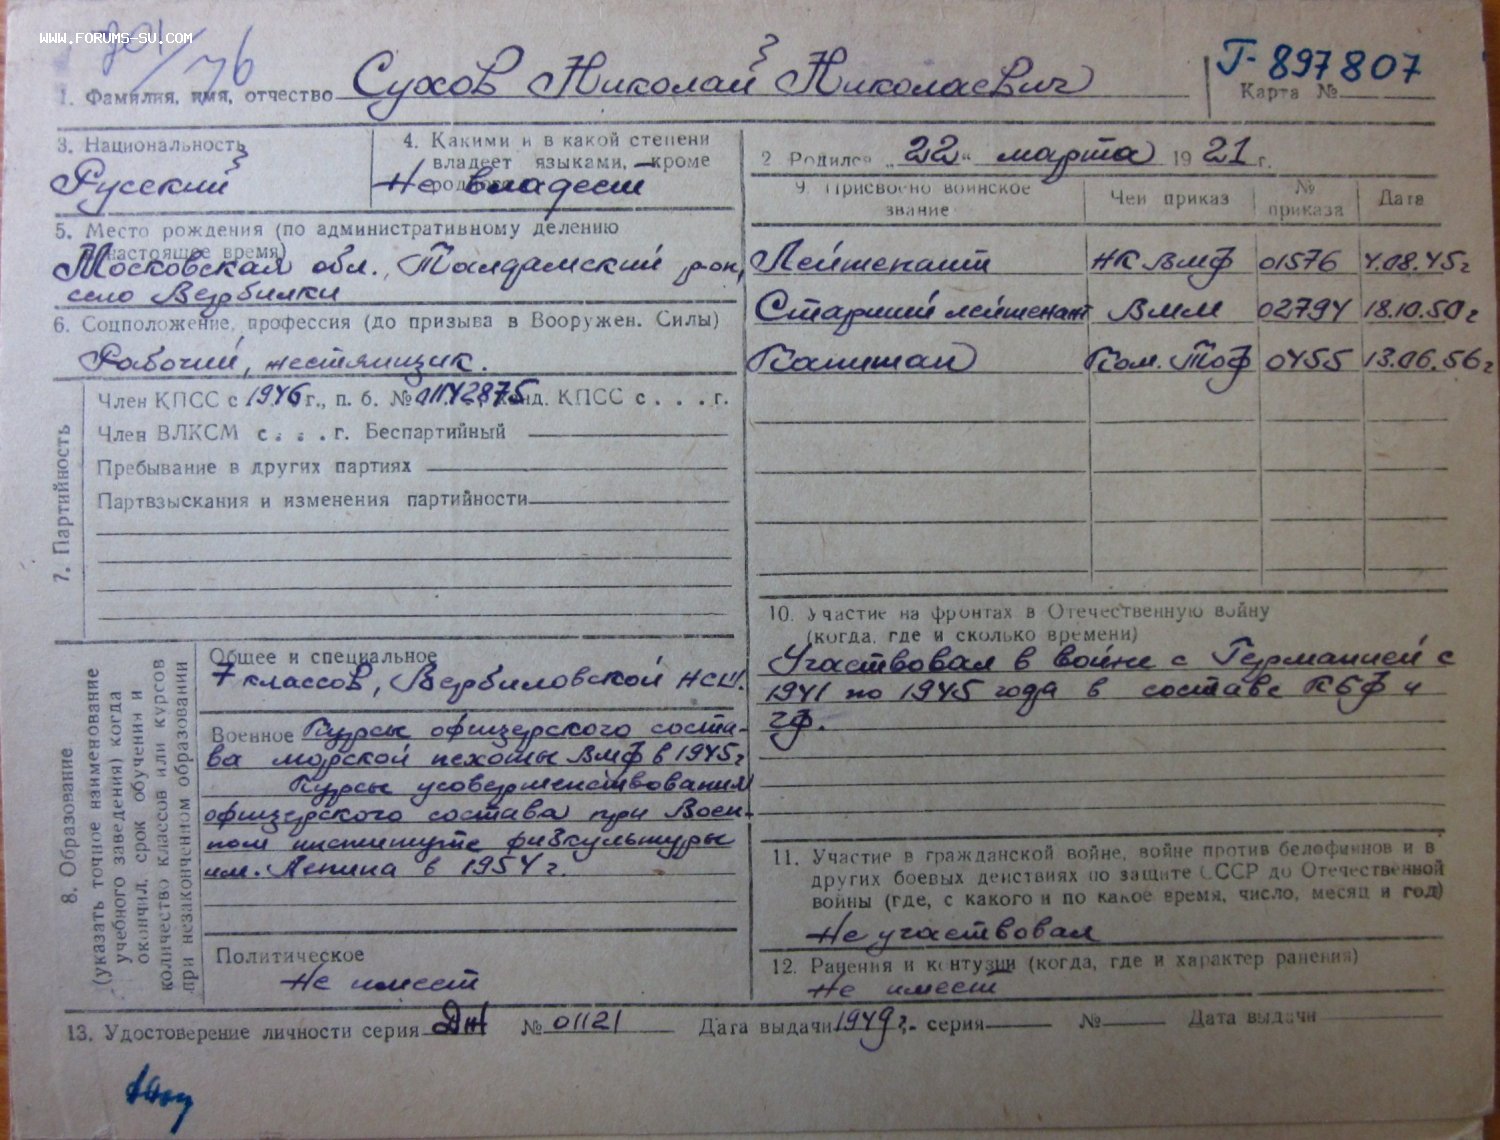 WWW.FORUMS-SU.COM
76
Г-897807
1. Фамилия, имя, отчество Сухов Николай Николаевич
Карта №
3. Национальность
Русский
4. Какими и в какой степени
владеет языками, кроме
Не владеет
2. Родился „22“ марта 1921 г.
5. Место рождения (по административному делению
настоящее время)
Московская обл., Талдомский р-он,
село Вербилки
6. Соцположение, профессия (до призыва в Вооружен. Силы)
Рабочий, жестянщик.
9. Присвоено воинское звание
Чей приказ
№ приказа
Дата
Лейтенант НК ВМФ 01576 4.08.45г
Старший лейтенант ВММ 02794 18.10.50г
Капитан Ком. ТОФ 0455 13.06.56г
7. Партийность
Член КПСС с 1946 г., п. б. № 01142875, канд. КПСС с . . . г.
Член ВЛКСМ с . . . г. Беспартийный
Пребывание в других партиях
Партвзыскания и изменения партийности
8. Образование
(указать точное наименование
учебного заведения) когда
окончил, срок обучения и
количество классов или курсов
при незаконченном образовании
Общее и специальное
7 классов, Вербиловской НСШ.
Военное Курсы офицерского соста-
ва морской пехоты ВМФ в 1945г
Курсы усовершенствования
офицерского состава при Воен-
ном институте физкультуры
им. Ленина в 1954 г.
Политическое
Не имеет
10. Участие на фронтах в Отечественную войну
(когда, где и сколько времени)
Участвовал в войне с Германией с
1941 по 1945 года в составе КБФ и
11. Участие в гражданской войне, войне против белофиннов и в
других боевых действиях по защите СССР до Отечественной
войны (где, с какого и по какое время, число, месяц и год)
Не участвовал
12. Ранения и контузии (когда, где и характер ранения)
Не имеет
13. Удостоверение личности серия № 01121 Дата выдачи 1949 г. серия № Дата выдачи